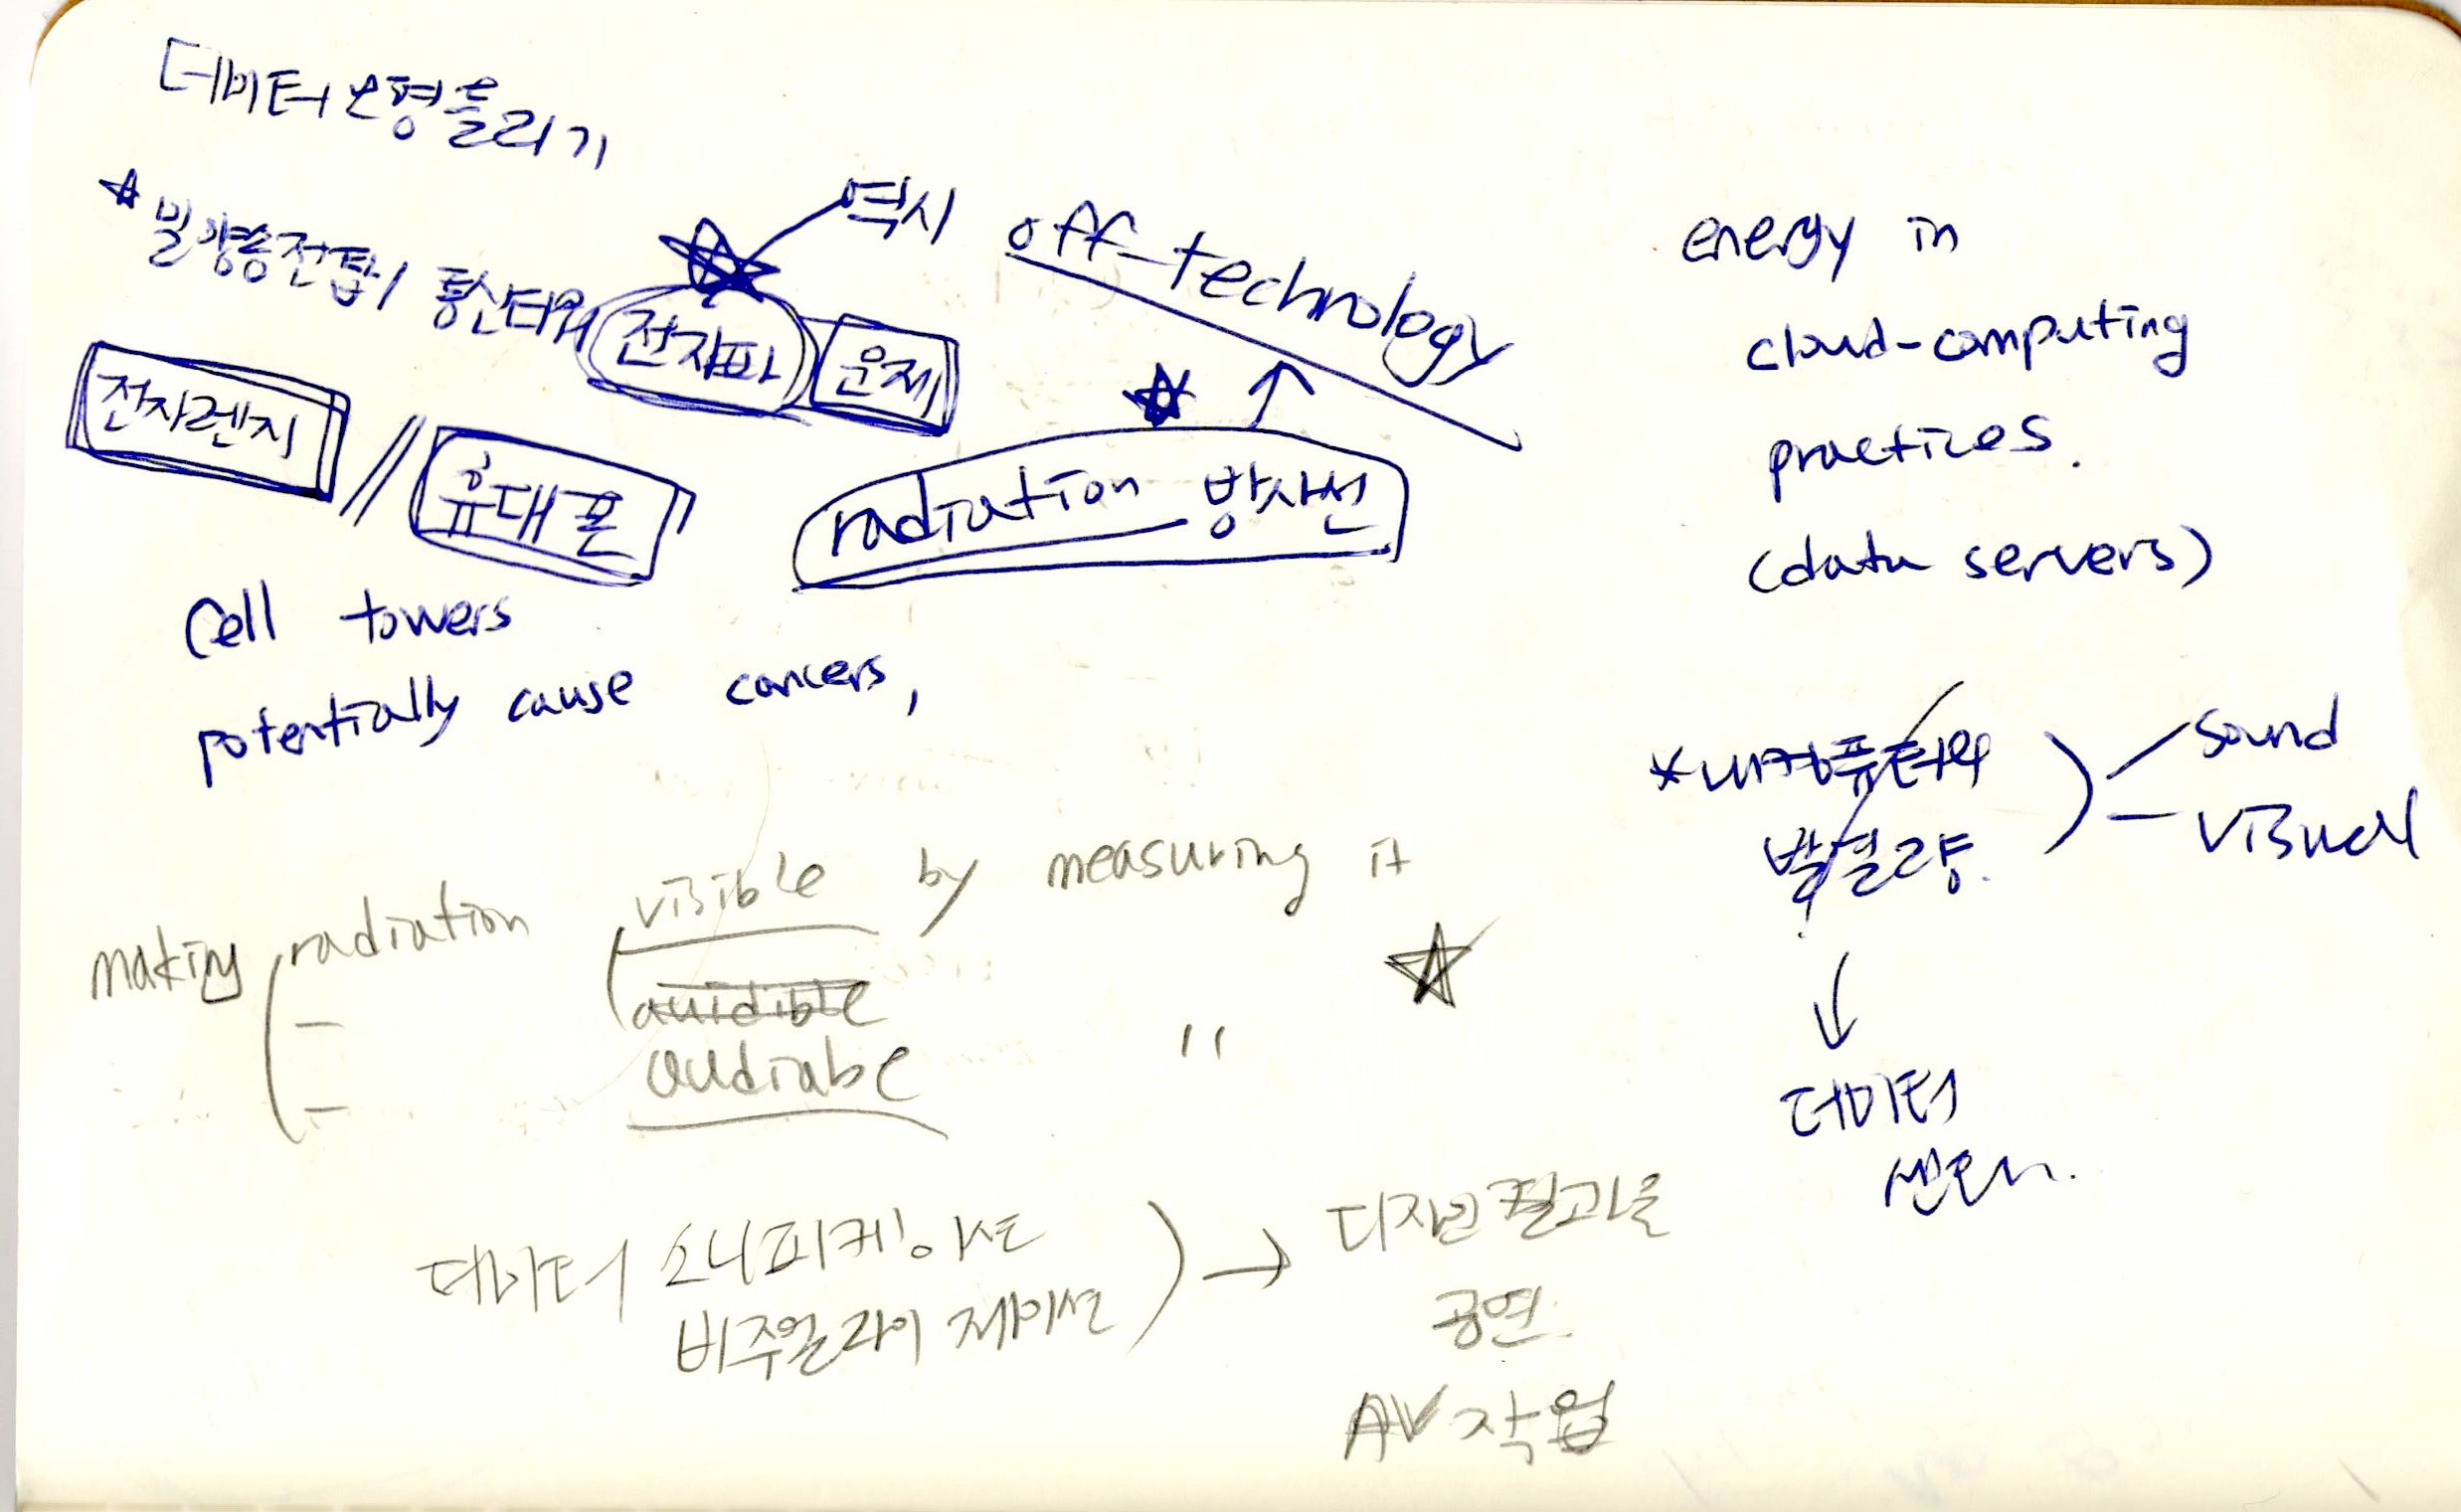 데이터 변형놀리기
밀양송전탑 / 통신타워 전자파 문제
역시 off-technology
전자렌지 // 휴대폰
radiation 방사선
Cell towers
potentially cause cancers,
energy in
cloud-computing
practices.
(data servers)
내컴퓨터의
발열량.
sound
visual
데이터
센터
making radiation visible by measuring it
auidible
audiable "
데이터 소니피케이션
비주얼라이제이션
→ 디자인 결과물
공연.
AV 작업